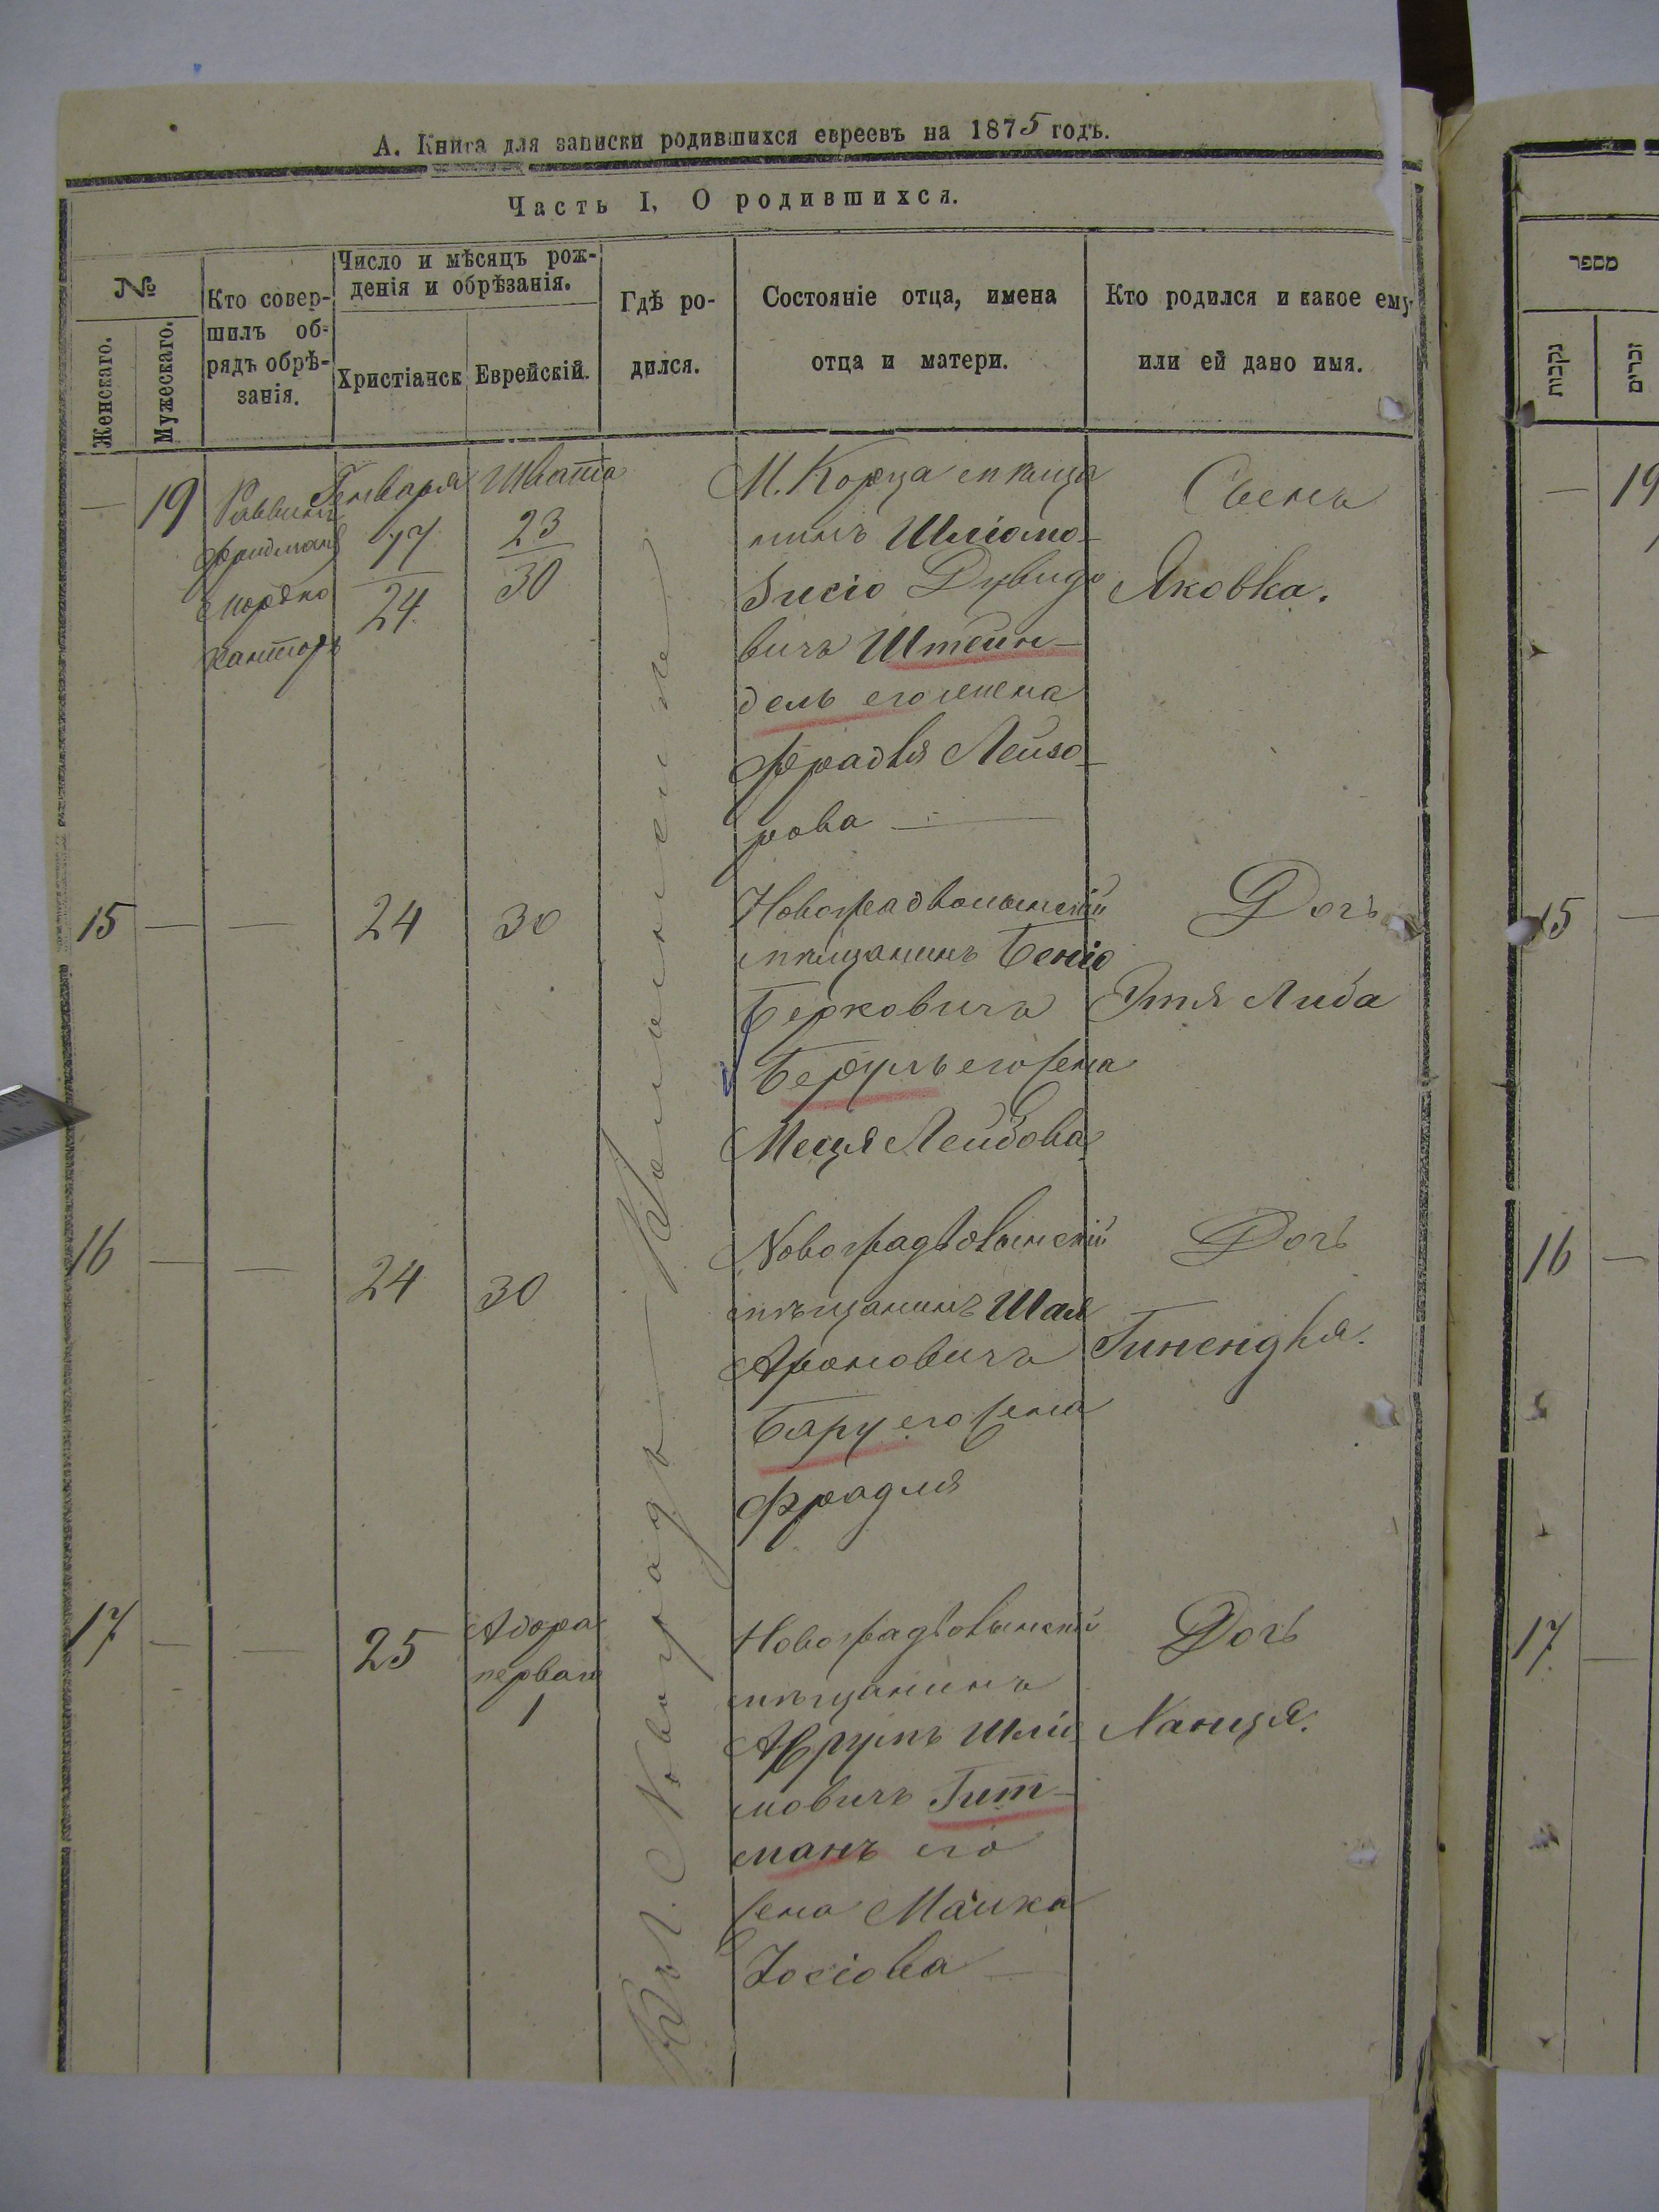 А. Книга для записки родившихся евреевъ на 1875 годъ.
Часть I. О родившихся.
№
Женскаго.
Мужескаго.
Кто совер-
шилъ об-
рядъ обрѣ-
занія.
Число и мѣсяцъ рож-
денія и обрѣзанія.
Христіанск
Еврейскій.
Гдѣ ро-
дился.
Состояніе отца, имена
отца и матери.
Кто родился и какое ему
или ей дано имя.
מספר
נקבות
זכרים
—
19
Раввинъ
Фридманъ
Мордко
Канторъ
Генваря
17
24
Швата
23
30
Въ г. Новоградъ-Волынскѣ
М. Корца мѣща
нинъ Шліомо-
Зисіо Дувидо
вичъ Штейн-
дель его жена
Фрадля Лейзо-
рова —
Сынъ
Яковка.
15
—
—
24
30
Новоградволынскій
мѣщанинъ Беніо
Берковичъ
Берулъ его жена
Меця Лейбова
Дочь
Этя Либа
16
—
—
24
30
Новоградволынскій
мѣщанинъ Шая
Ароновичъ
Бару его жена
Фрадля
Дочь
Гинендля.
17
—
—
25
Адара
перваго
1
Новоградволынскій
мѣщанинъ
Аврумъ Шліо
мовичъ Гит-
манъ его
жена Малка
Іосіова —
Дочь
Ханця.
19
—
15
—
16
—
17
—